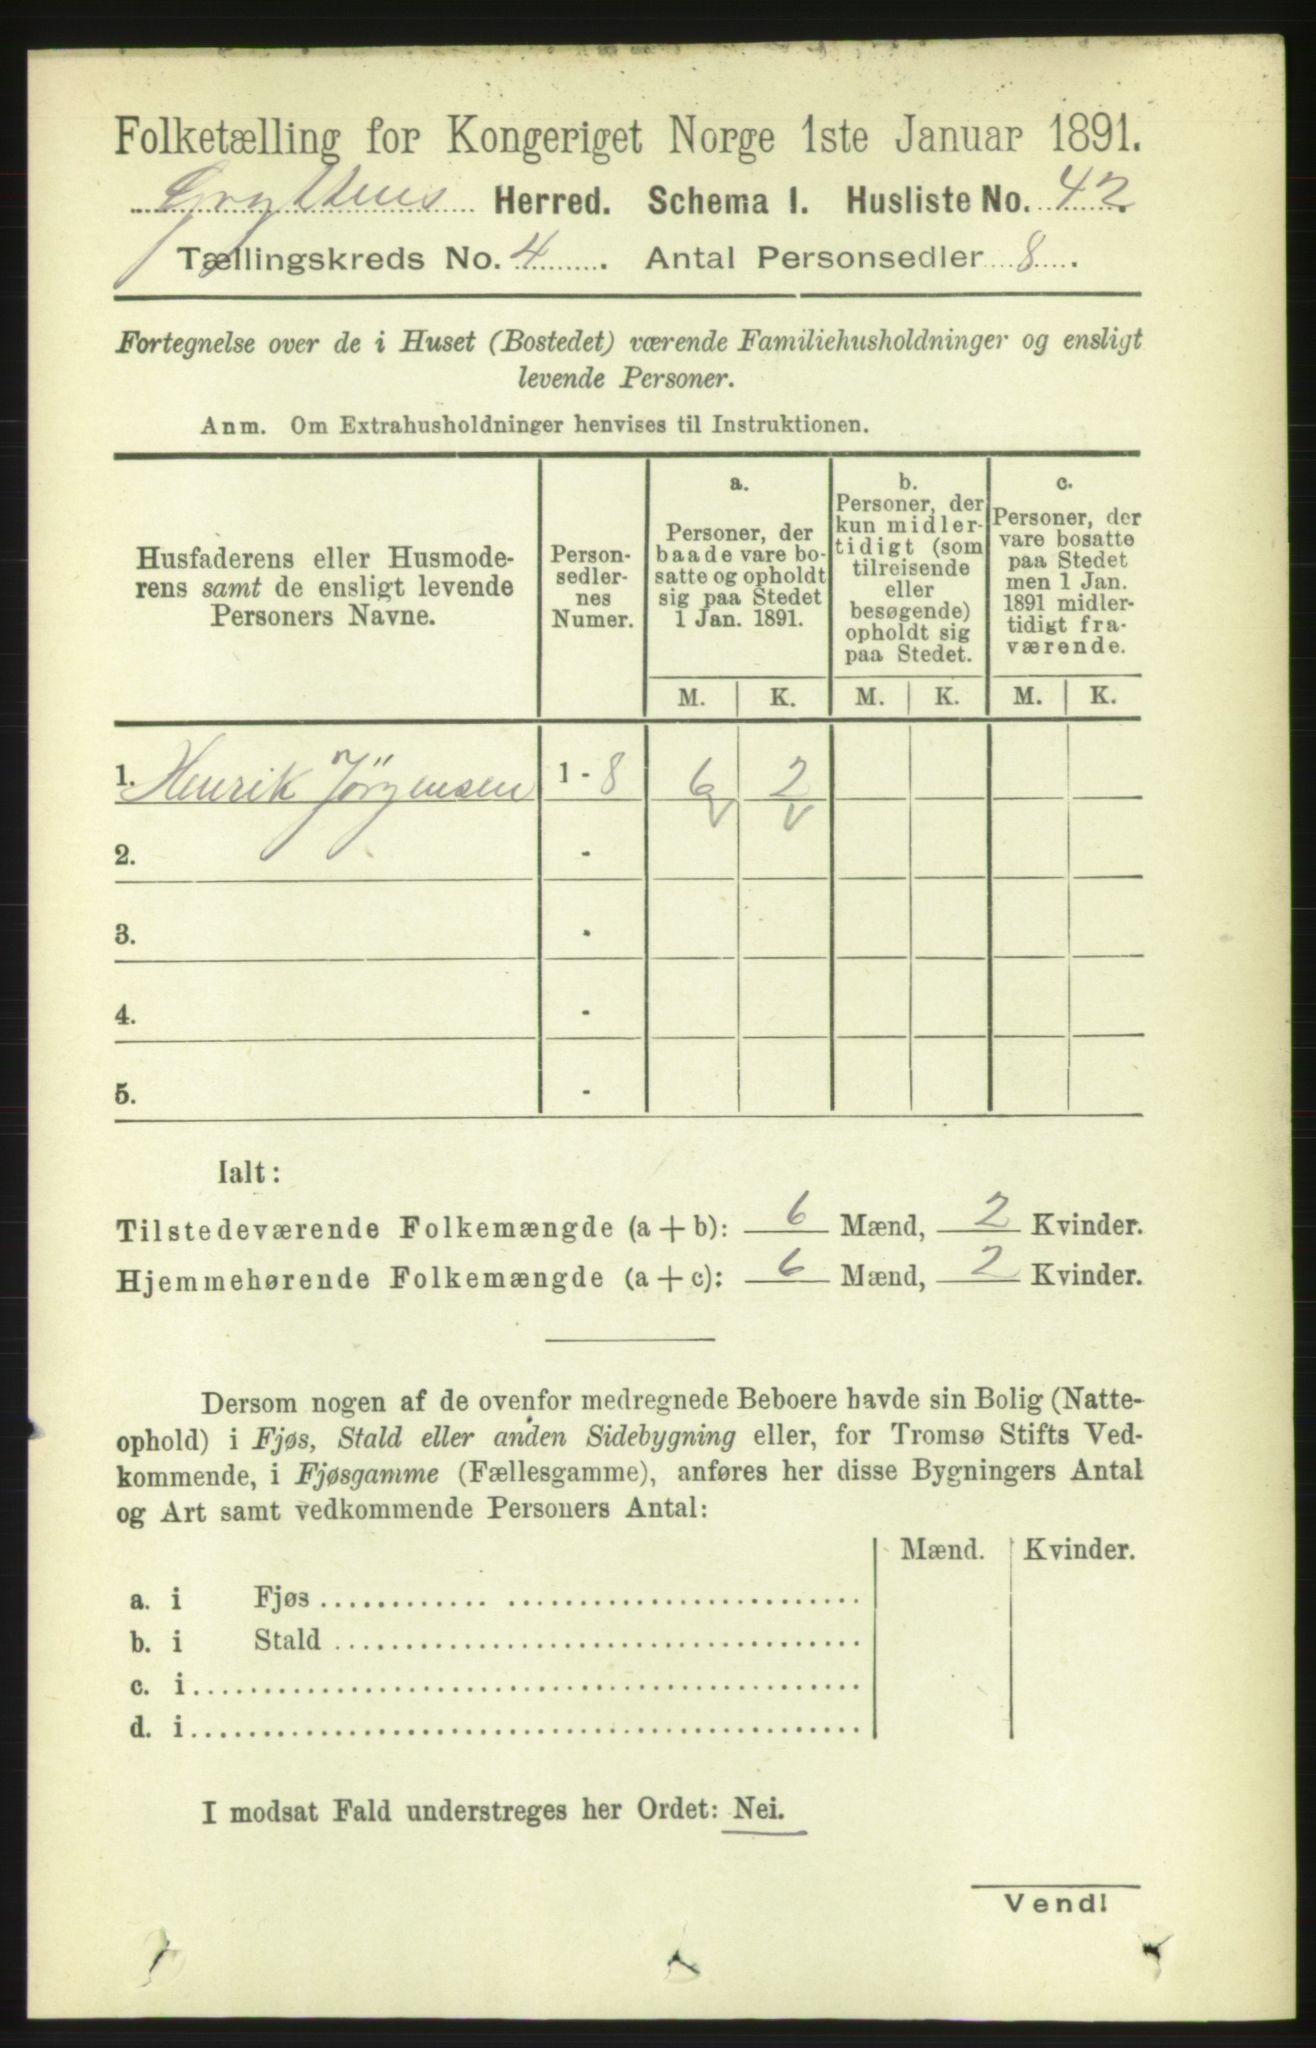 Folketælling for Kongeriget Norge 1ste Januar 1891.
Gryttens Herred. Schema I. Husliste No. 42.
Tællingskreds No. 4. Antal Personsedler 8.
Fortegnelse over de i Huset (Bostedet) værende Familiehusholdninger og ensligt
levende Personer.
Anm. Om Extrahusholdninger henvises til Instruktionen.
Husfaderens eller Husmode-
rens samt de ensligt levende
Personers Navne.
Person-
sedler-
nes
Numer.
a.
Personer, der
baade vare bo-
satte og opholdt
sig paa Stedet
1 Jan. 1891.
b.
Personer, der
kun midler-
tidigt (som
tilreisende
eller
besøgende)
opholdt sig
paa Stedet.
c.
Personer, der
vare bosatte
paa Stedet
men 1 Jan.
1891 midler-
tidigt fra-
værende.
M. K. M. K. M. K.
1. Henrik Jörgensen 1 - 8 6 2
v v
2. -
3. -
4. -
5. -
Ialt:
Tilstedeværende Folkemængde (a + b): 6 Mænd, 2 Kvinder.
Hjemmehørende Folkemængde (a + c): 6 Mænd, 2 Kvinder.
Dersom nogen af de ovenfor medregnede Beboere havde sin Bolig (Natte-
ophold) i Fjøs, Stald eller anden Sidebygning eller, for Tromsø Stifts Ved-
kommende, i Fjøsgamme (Fællesgamme), anføres her disse Bygningers Antal
og Art samt vedkommende Personers Antal:
Mænd. Kvinder.
a. i Fjøs
b. i Stald
c. i
d. i
I modsat Fald understreges her Ordet: Nei.
Vend!